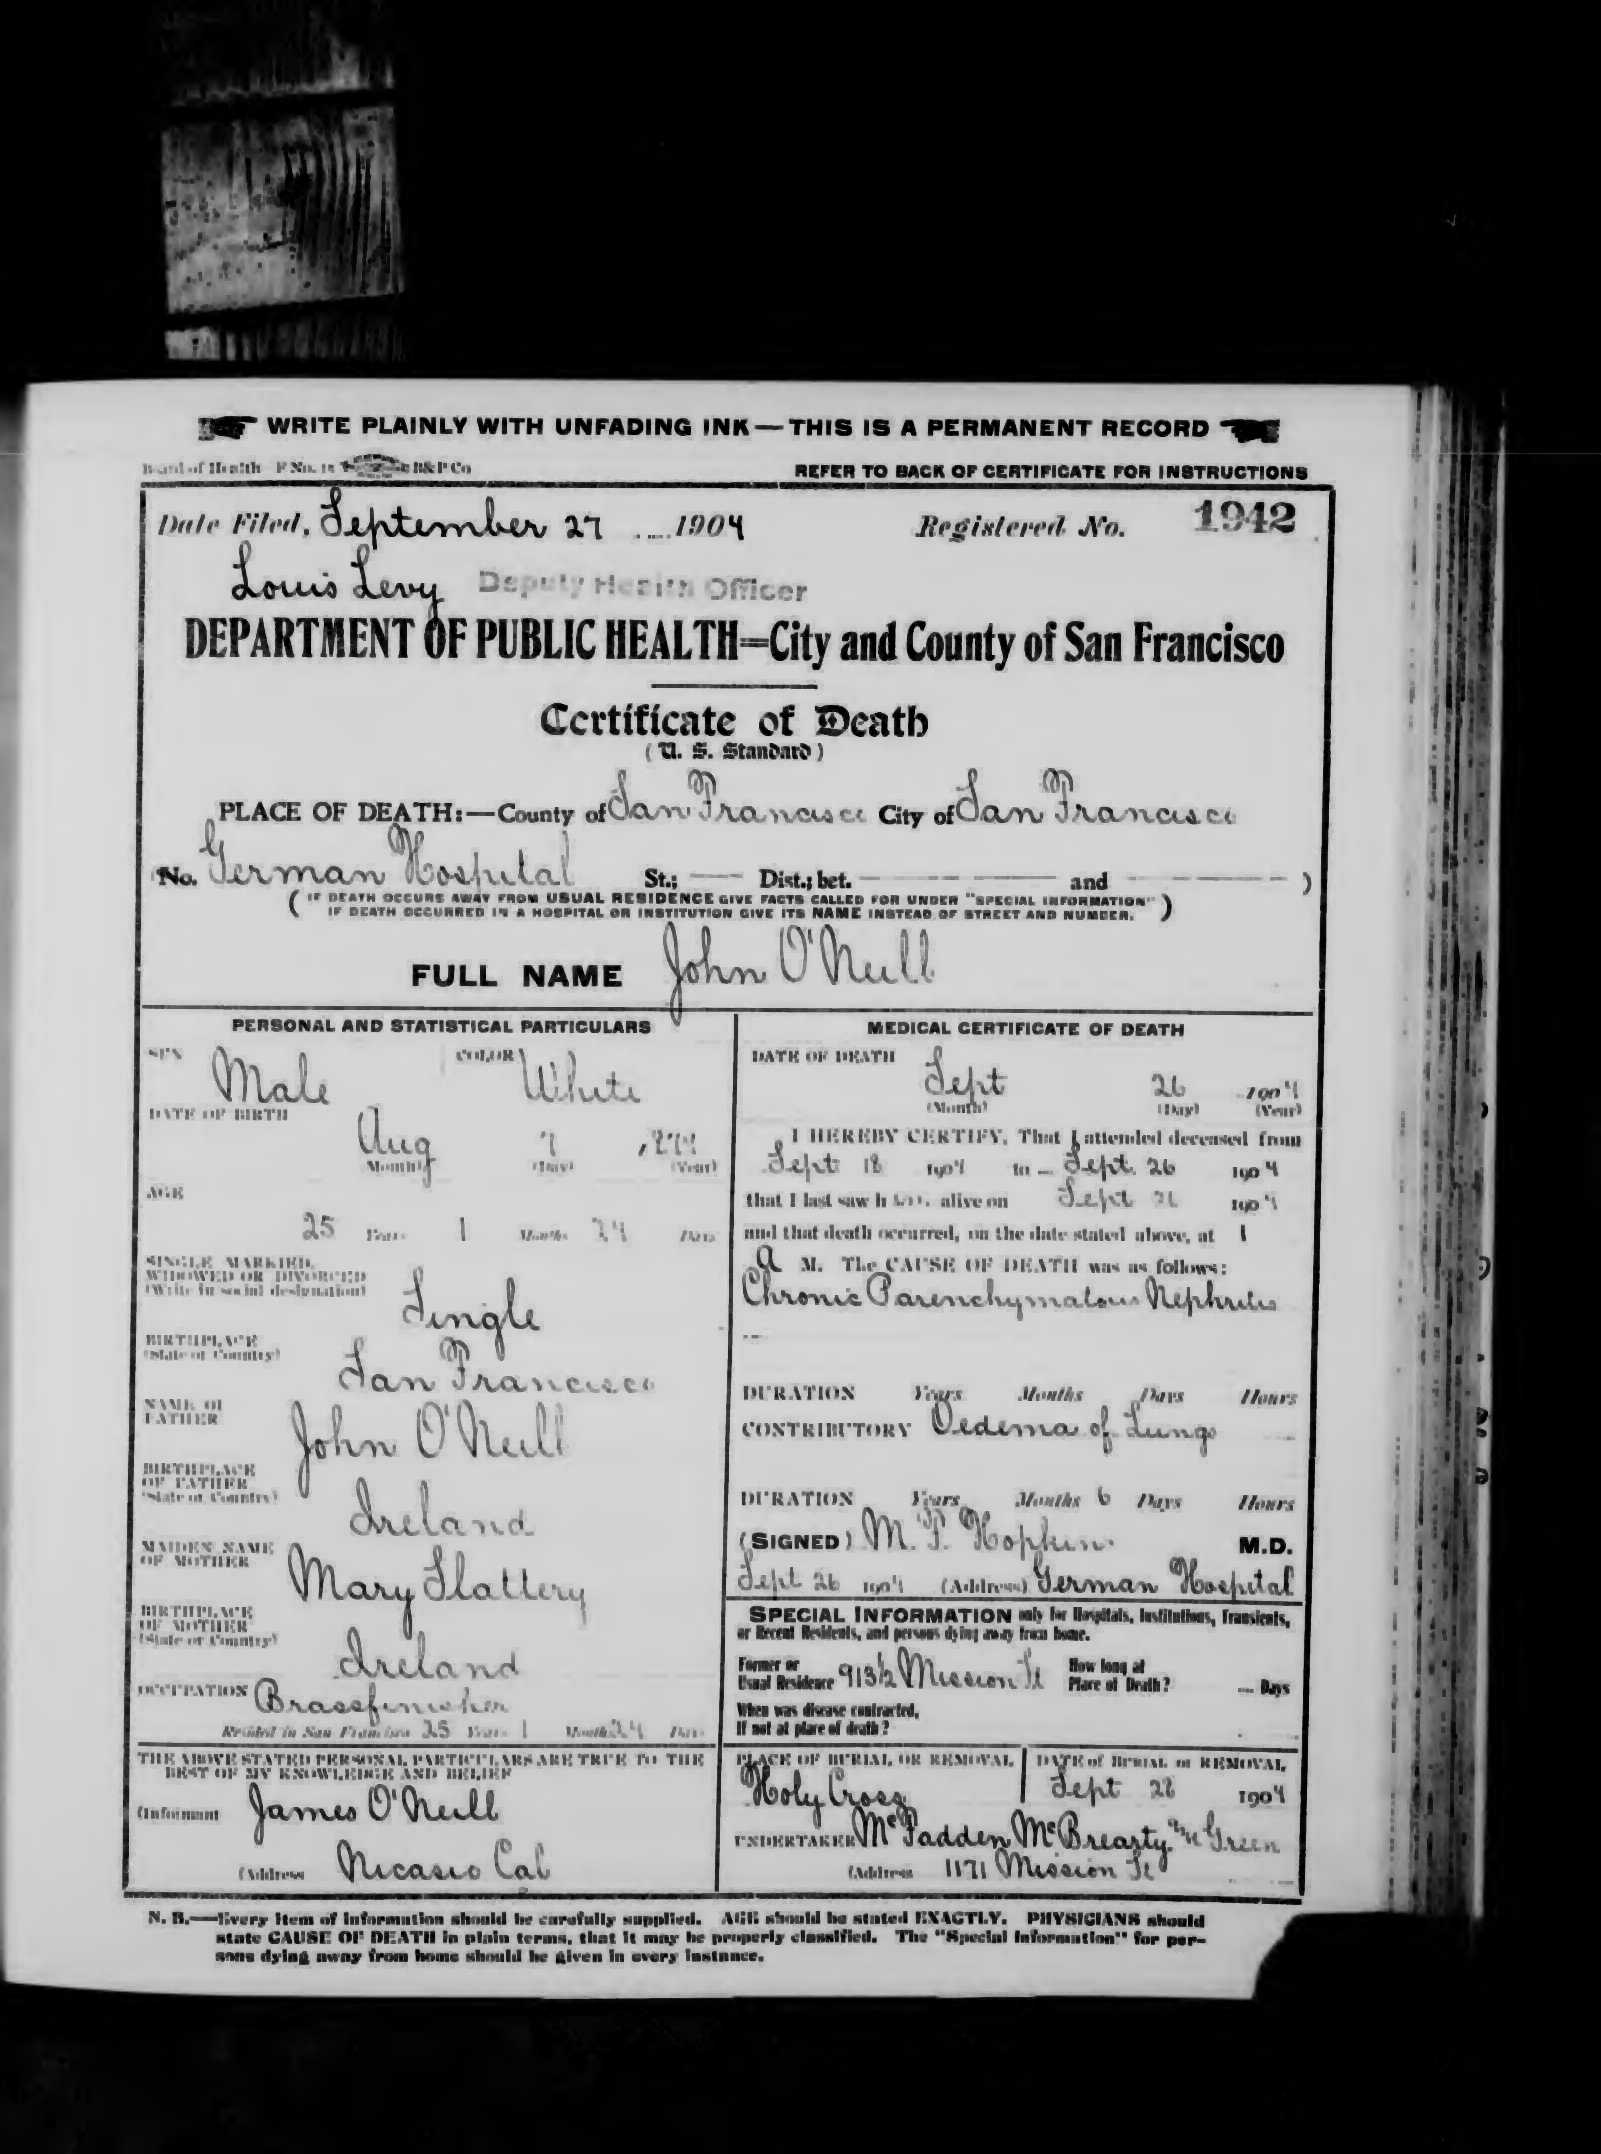 WRITE PLAINLY WITH UNFADING INK—THIS IS A PERMANENT RECORD
Board of Health F No. 15 B&P Co
REFER TO BACK OF CERTIFICATE FOR INSTRUCTIONS
Date Filed, September 27 1904 Registered No. 1942
Louis Levy Deputy Health Officer
DEPARTMENT OF PUBLIC HEALTH=City and County of San Francisco
Certificate of Death
(U. S. Standard)
PLACE OF DEATH:—County of San Francisco City of San Francisco
No. German Hospital St.; — Dist.; bet. — and — )
( IF DEATH OCCURS AWAY FROM USUAL RESIDENCE GIVE FACTS CALLED FOR UNDER "SPECIAL INFORMATION"
IF DEATH OCCURRED IN A HOSPITAL OR INSTITUTION GIVE ITS NAME INSTEAD OF STREET AND NUMBER. )
FULL NAME John O'Neill
PERSONAL AND STATISTICAL PARTICULARS
SEX Male COLOR White
DATE OF BIRTH
Aug 7 1879
(Month) (Day) (Year)
AGE
25 Years 1 Months 24 Days
SINGLE, MARRIED,
WIDOWED OR DIVORCED
(Write in social designation)
Single
BIRTHPLACE
(State or Country)
San Francisco
NAME OF
FATHER
John O'Neill
BIRTHPLACE
OF FATHER
(State or Country)
Ireland
MAIDEN NAME
OF MOTHER
Mary Slattery
BIRTHPLACE
OF MOTHER
(State or Country)
Ireland
OCCUPATION Brassfinisher
Resided in San Francisco 25 Years 1 Months 24 Days
THE ABOVE STATED PERSONAL PARTICULARS ARE TRUE TO THE
BEST OF MY KNOWLEDGE AND BELIEF
(Informant James O'Neill
(Address Nicasio Cal
MEDICAL CERTIFICATE OF DEATH
DATE OF DEATH
Sept 26 1904
(Month) (Day) (Year)
I HEREBY CERTIFY, That I attended deceased from
Sept 18 1904 to Sept. 26 1904
that I last saw h im alive on Sept 26 1904
and that death occurred, on the date stated above, at 1
A M. The CAUSE OF DEATH was as follows:
Chronic Parenchymatous Nephritis
DURATION Years Months Days Hours
CONTRIBUTORY Oedema of Lungs
DURATION Years Months 6 Days Hours
(SIGNED) M. P. Hopkin M.D.
Sept 26 1904 (Address) German Hospital
SPECIAL INFORMATION only for Hospitals, Institutions, Transients,
or Recent Residents, and persons dying away from home.
Former or
Usual Residence 913½ Mission St
How long at
Place of Death? Days
When was disease contracted,
If not at place of death?
PLACE OF BURIAL OR REMOVAL
Holy Cross
DATE of BURIAL or REMOVAL
Sept 28 1904
UNDERTAKER McFadden McBrearty Green
(Address 1171 Mission St
N. B.—Every item of information should be carefully supplied. AGE should be stated EXACTLY. PHYSICIANS should
state CAUSE OF DEATH in plain terms, that it may be properly classified. The "Special Information" for per-
sons dying away from home should be given in every instance.